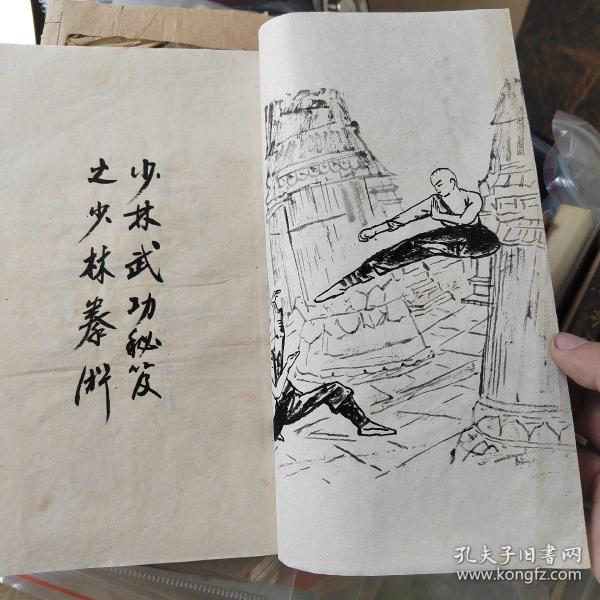 少林武功秘笈
之少林拳術
孔夫子旧书网
www.kongfz.com